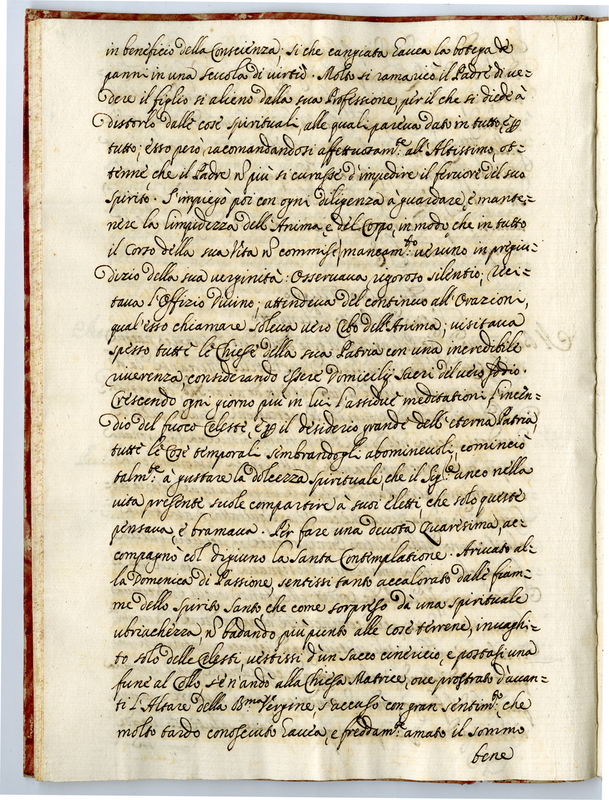 in beneficio della Conscienza; si che cangiata havea la botega de
panni in una scuola di virtù. Molto si ramaricò il Padre di ve=
dere il figlio si alieno dalla sua Professione, per il che si diede à
distorlo dalle cose spirituali, alle quali pareva dato in tutto, e p
tutto; esso però, racomandandosi affettuosam.te all'Altissimo, ot=
tenne, che il Padre ñ più si curasse d'impedire il fervore del suo
spirito. S'impiegò poi con ogni diligenza à guardare, è mante=
nere la limpidezza dell'Anima, e del Corpo, in modo, che in tutto
il Corso della sua Vita ñ commise mancam.to veruno in pregiu=
dizio della sua verginità: Osservava rigoroso silentio; reci=
tava l'Offizio Divino; attendeva del continuo all'Orazioni,
qual'esso chiamare soleva vero Cibo dell'Anima; visitava
spesso tutte le Chiese della sua Patria con una incredibile
riverenza, considerando essere Domicilij Sacri del vero Iddio.
Crescendo ogni giorno più in lui l'assidue meditationi, l'incen=
dio del fuoco Celeste, e p il desiderio grande dell'eterna Patria,
tutte le Cose temporali sembrandogli abominevoli; cominciò
talm.te à gustare la dolcezza spirituale, che il Sig.re anco nella
vita presente suole compartire à suoi eletti che solo queste
pensava, è bramava. Per fare una devota Quaresima, ac=
compagnò col digiuno la Santa Contemplatione. Arivato al=
la Domenica di Passione, sentissi tanto accalorato dalle fiam=
me dello Spirito Santo che come sorpreso dà una spirituale
ubriachezza ñ badando più punto alle cose terrene, invaghi=
to solo delle Celesti, vestissi d'un Sacco cinericio, e postasi una
fune al Collo se n'andò alla Chiesa Matrice, ove prostrato d'avan=
ti l'Altare della B.ma Vergine, s'accusò con gran sentim.to, che
molto tardo conosciuto havea, e freddam.te amato il sommo
bene